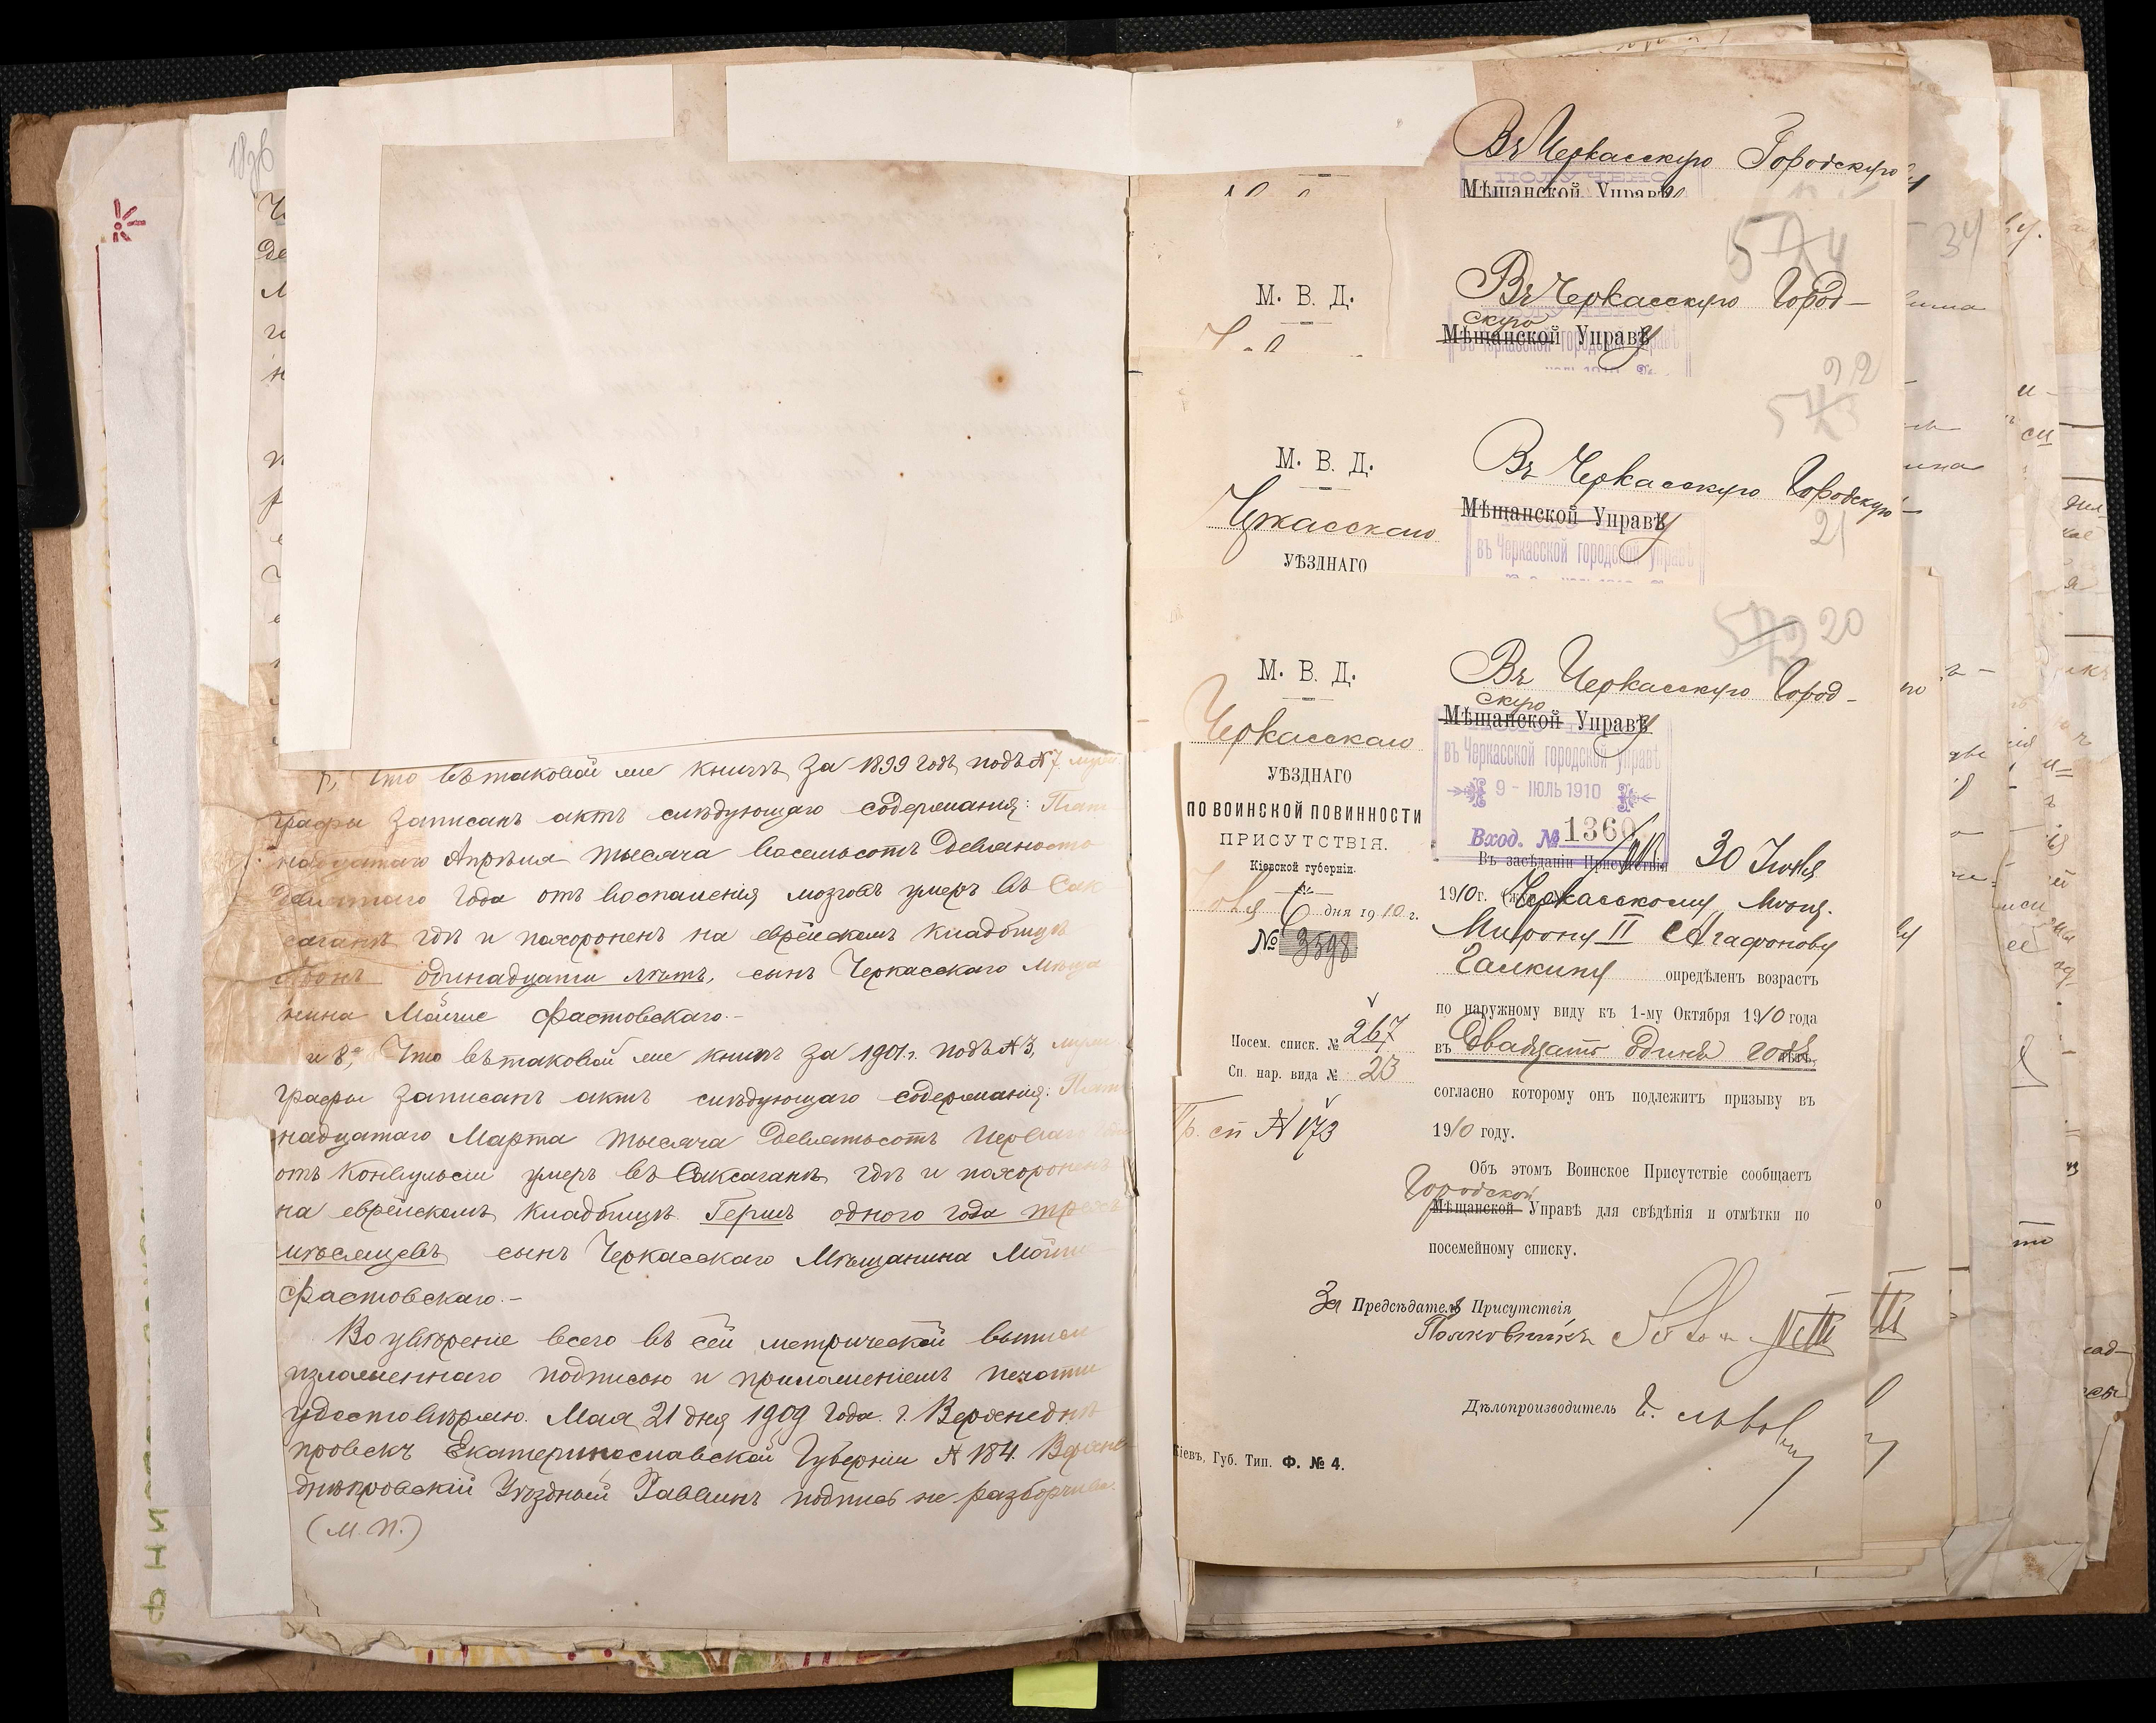 1896
7, Что въ таковой же книгѣ за 1899 годъ подъ № 7
графы записанъ актъ слѣдующаго содержания: Пят
надцатаго Апрѣля тысяча восемьсотъ девяносто
девятаго года отъ воспаленія мозговъ умеръ въ Сак
саганѣ гдѣ и похороненъ на еврейскомъ кладбищѣ
одинадцати лѣтъ, сынъ Черкасскаго Мѣща
нина Мойше Фастовскаго.-
и 8, Что въ таковой же книгѣ за 1901 г. подъ № 3,
графы записанъ актъ слѣдующаго содержания: Пят
надцатаго Марта тысяча девятьсотъ перваго
отъ конвульсіи умеръ въ Саксаганѣ гдѣ и похороненъ
на еврейскомъ кладбищѣ Гершъ одного года трехъ
мѣсяцевъ сынъ Черкасскаго Мѣщанина Мойше
Фастовскаго.-
Во увѣреніе всего въ сей метрической выписи
изложеннаго подписью и приложеніемъ печати
удостовѣряю. Мая 21 дня 1909 года. г. Верхнеднѣ
провскъ Екатеринославской Губерніи № 184. Верхне-
днѣпровскій Уѣздный Раввинъ подпись не разборчива.
(М.П.)
Въ Черкасскую Городскую
ПОЛУЧЕНО
Мѣщанской Управѣ
34
М. В. Д.
Въ Черкасскую Город-
скую
Мѣщанской Управѣ
въ Черкасской городской управѣ
22
М. В. Д.
Въ Черкасскую Городскую
Черкасскаго
Мѣщанской Управѣ
21
въ Черкасской городской управѣ
УѢЗДНАГО
20
М. В. Д.
Въ Черкасскую Город-
скую
Черкасскаго
Мѣщанской Управѣ
въ Черкасской городской управѣ
УѢЗДНАГО
9 - ІЮЛЬ 1910
ПО ВОИНСКОЙ ПОВИННОСТИ
ПРИСУТСТВІЯ.
Вход. № 1360
Кіевской губерніи.
Въ засѣданіи Присутствія 30 Іюня
6 дня 1910 г.
1910 г. Черкасскому Мѣщ.
№ 3598
Мирону II Агафонову
Галкину опредѣленъ возрастъ
по наружному виду къ 1-му Октября 1910 года
Посем. списк. № 267
въ Двадцать одинъ годъ лѣтъ,
Сп. нар. вида № 23
согласно которому онъ подлежитъ призыву въ
Пр. сп № 173
1910 году.
Объ этомъ Воинское Присутствіе сообщаетъ
Городской
Мѣщанской Управѣ для свѣдѣнія и отмѣтки по
посемейному списку.
За Предсѣдателя Присутствія
Полковникъ
Дѣлопроизводитель
Кіевъ, Губ. Тип. Ф. № 4.